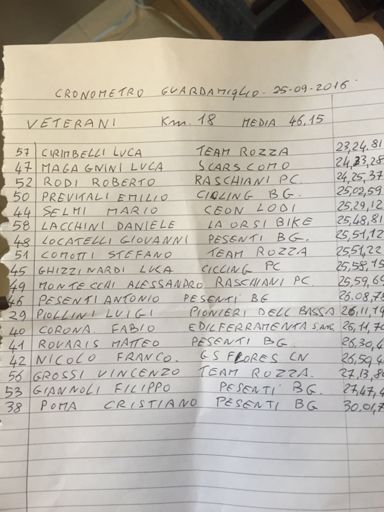 CRONOMETRO GUARDAMIGLIO. 25-09-2016
VETERANI Km. 18 MEDIA 46,15
57 CIRIMBELLI LUCA TEAM ROZZA 23,24.81
47 MAGAGNINI LUCA SCARSCOMO 24,23,28
52 RODI ROBERTO RASCHIANI PC. 24,25,37
50 PREVITALI EMILIO CICLING BG. 25,02,59
44 SELMI MARIO CEON LODI 25,29,12
58 LACCHINI DANIELE LA ORSI BIKE 25,48,81
48 LOCATELLI GIOVANNI PESENTI BG. 25,51,12
51 COMOTTI STEFANO TEAM ROZZA 25,51,22
45 GHIZZINARDI LUCA CICLING PC 25,58,15
49 MONTECCHI ALESSANDRO RASCHIANI PC. 25,59,6
46 PESENTI ANTONIO PESENTI BG 26,08,7
29 PIOLLINI LUIGI PIONIERI DELL BASSA 26,11,1
40 CORONA. FABIO EDILFERRAMENTA 26,11,7
41 ROVARIS MATEO PESENTI BG. 26,30,4
42 NICOLO FRANCO. GS FLORES CN 26,59,4
56 GROSSI VINCENZO TEAM ROZZA. 27,13,8
53 GIANNOLI FILIPPO PESENTI BG. 27,47,4
38 POMA CRISTIANO PESENTI BG 30,01,7